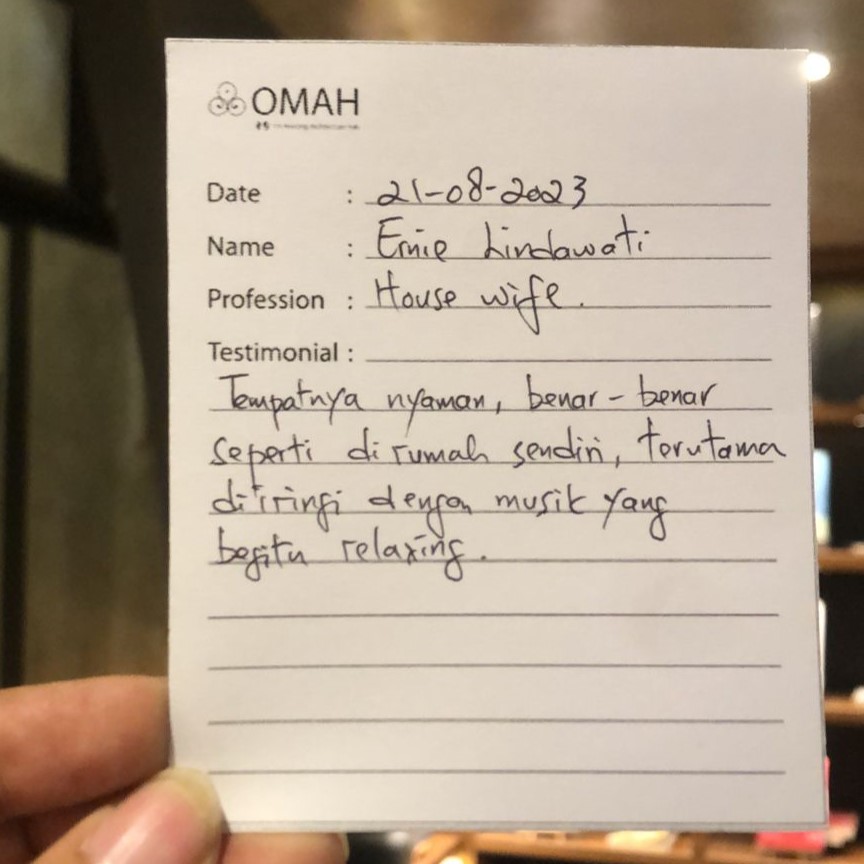 OMAH
Date : 21-08-2023
Name : Ernie Lindawati
Profession : House wife.
Testimonial :
Tempatnya nyaman, benar-benar
seperti di rumah sendiri, terutama
diiringi dengan musik yang
begitu relaxing.